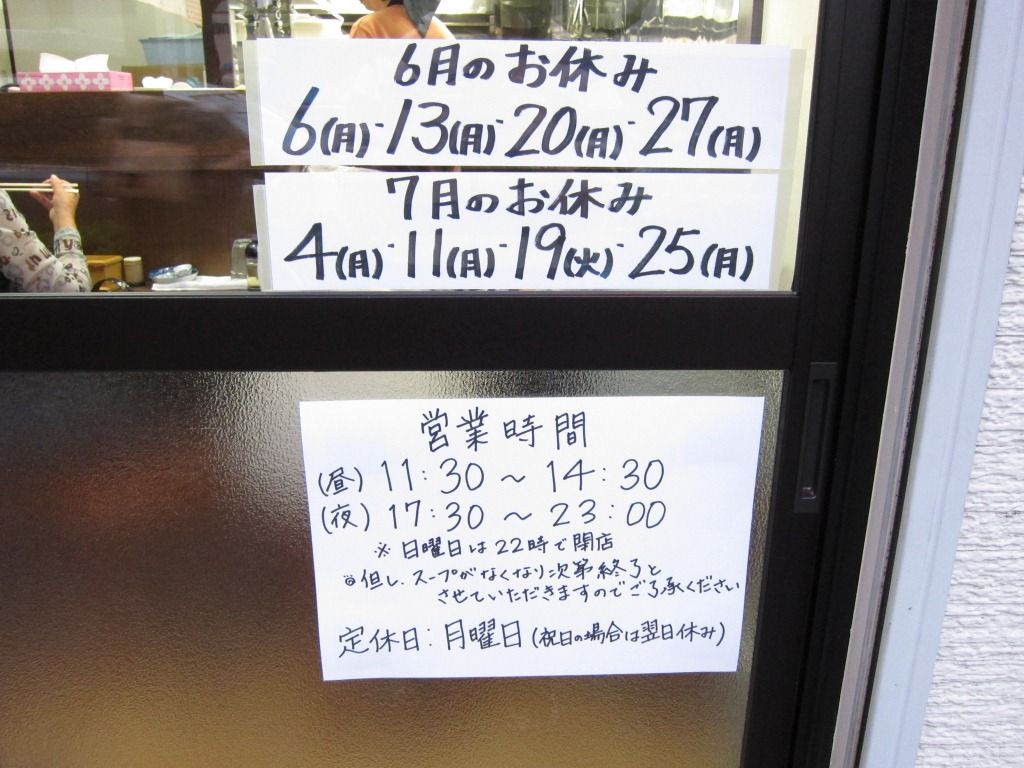 6月のお休み
6(月)-13(月)-20(月)-27(月)
7月のお休み
4(月)-11(月)-19(火)-25(月)
営業時間
(昼) 11:30 ～ 14:30
(夜) 17:30 ～ 23:00
※ 日曜日は22時で閉店
※但し、スープがなくなり次第終了と
させていただきますのでご了承ください
定休日:月曜日(祝日の場合は翌日休み)